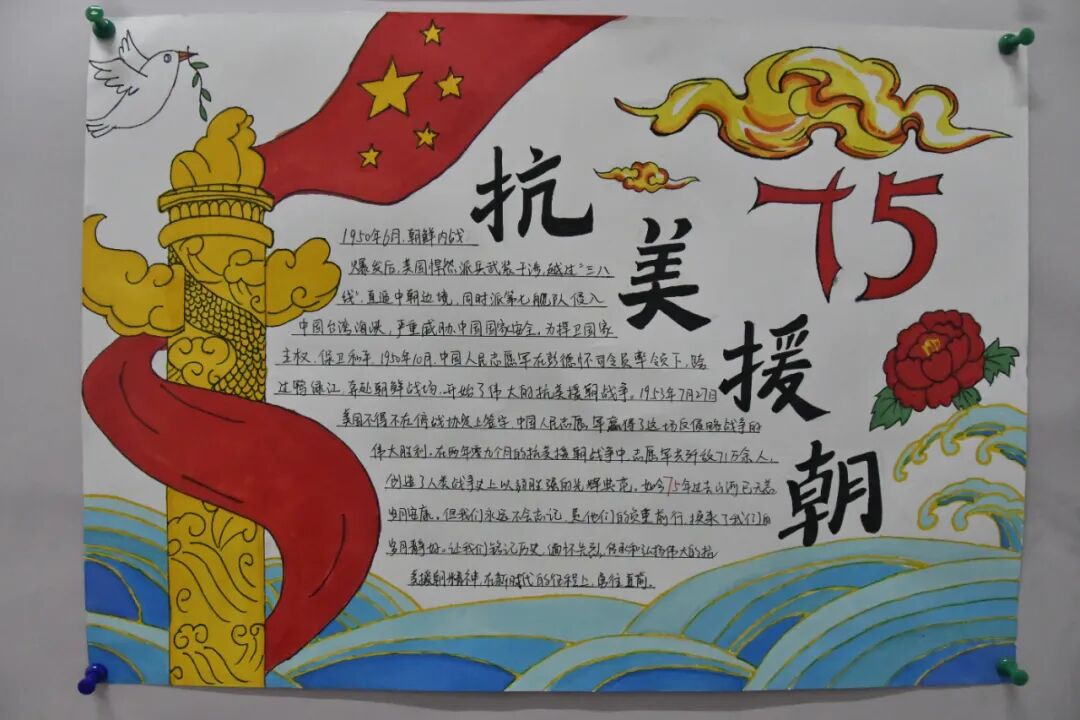 抗美援朝
75
1950年6月,朝鲜内战
爆发后,美国悍然派兵武装干涉,越过“三八
线”,直逼中朝边境,同时派第七舰队侵入
中国台湾海峡,严重威胁中国国家安全,为捍卫国家
主权、保卫和平,1950年10月,中国人民志愿军在彭德怀司令员率领下,跨
过鸭绿江,奔赴朝鲜战场,开始了伟大的抗美援朝战争。1953年7月27日
美国不得不在停战协定上签字,中国人民志愿军赢得了这场反侵略战争的
伟大胜利。在两年零九个月的抗美援朝战争中,志愿军共歼敌71万余人,
创造了人类战争史上以弱胜强的光辉典范。如今75年过去山河已无恙
岁月安康,但我们永远不会忘记,是他们的负重前行,换来了我们的
岁月静好。让我们铭记历史,缅怀先烈,传承和弘扬伟大的抗
美援朝精神,在新时代的征程上,勇往直前。